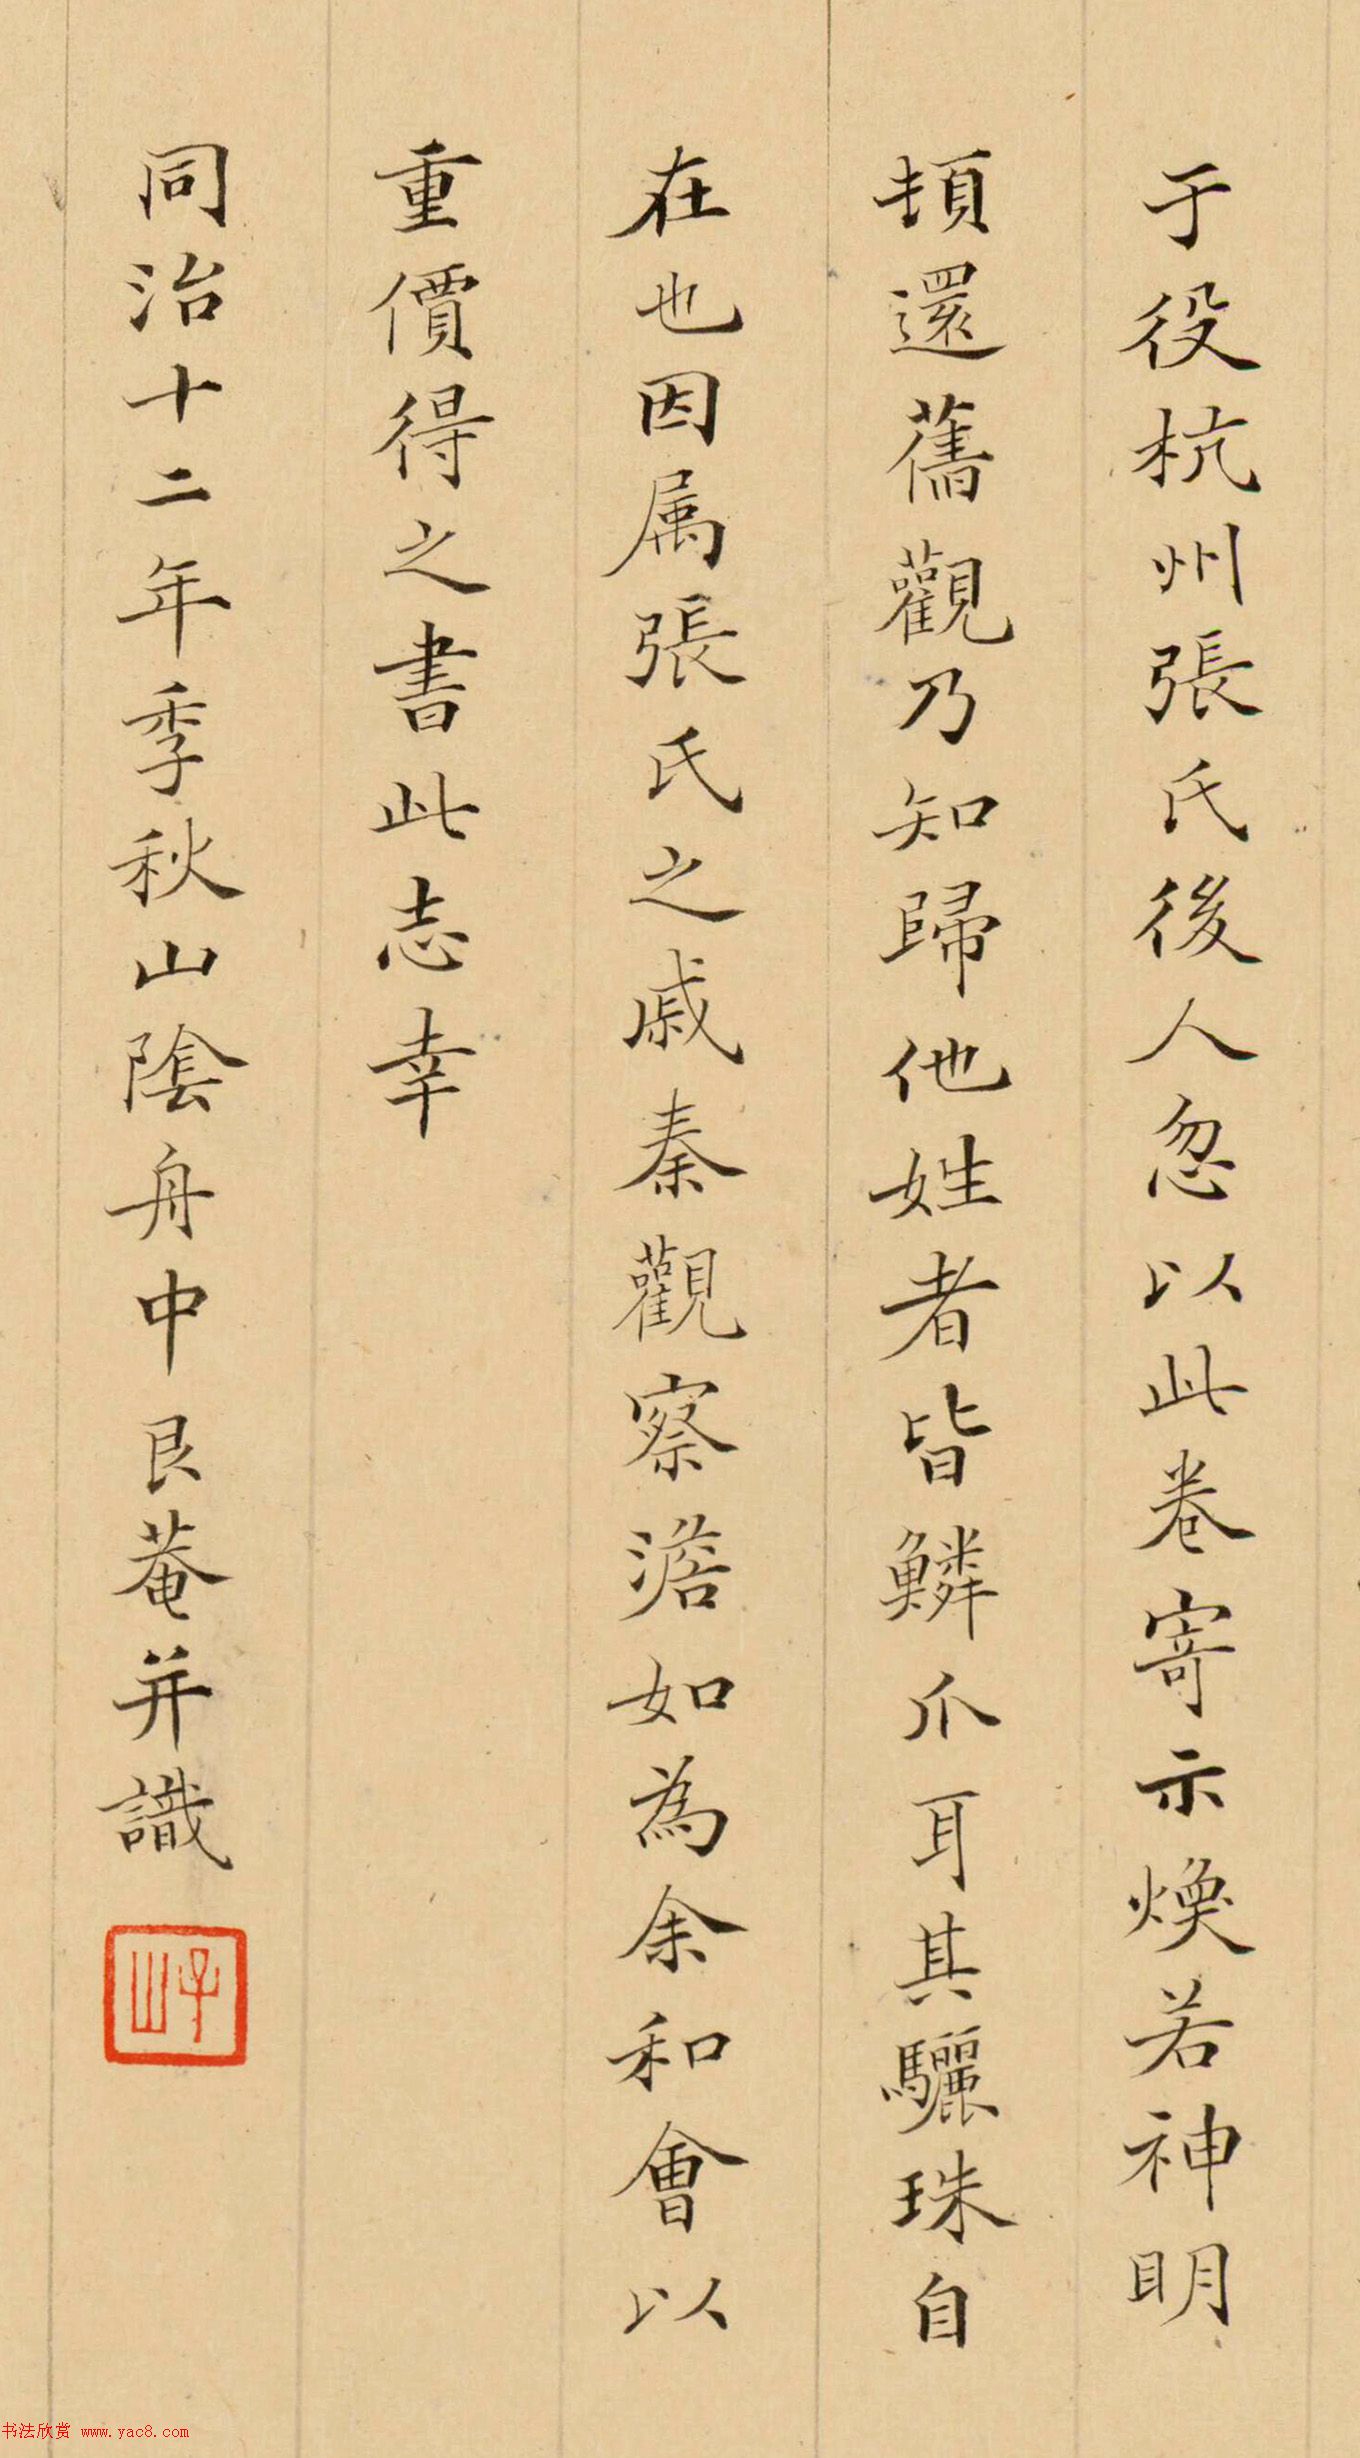 于役杭州張氏後人忽以此卷寄示煥若神明
頓還舊觀乃知歸他姓者皆鱗爪耳其驪珠自
在也因属張氏之戚秦觀察澹如為余和會以
重價得之書此志幸
同治十二年季秋山陰舟中艮菴并識
子山
书法欣赏 www.yac8.com